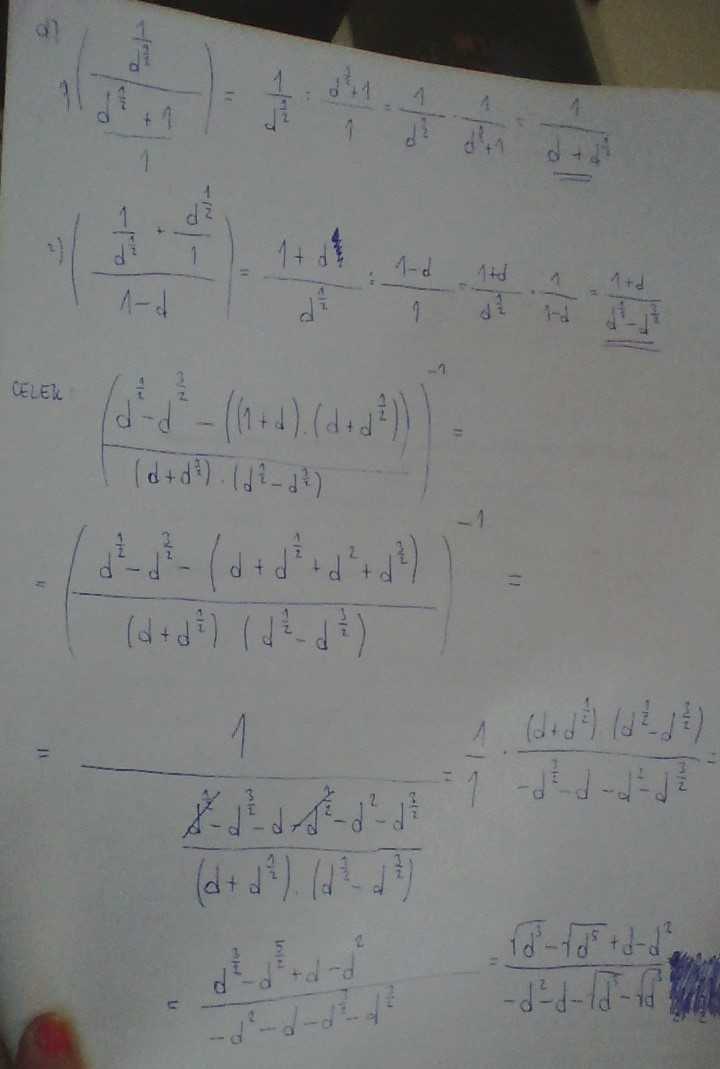 a)
1) ( (1/d^(1/2)) / ((d^(1/2) + 1)/1) ) = 1/d^(1/2) : (d^(1/2)+1)/1 = 1/d^(1/2) · 1/(d^(1/2)+1) = 1/(d + d^(1/2))
2) ( (1/d^(1/2) + d^(1/2)/1) / (1-d) ) = (1+d)/d^(1/2) : (1-d)/1 = (1+d)/d^(1/2) · 1/(1-d) = (1+d)/(d^(1/2) - d^(3/2))
CELEK: ( (d^(1/2) - d^(3/2) - ((1+d).(d+d^(1/2)))) / ((d+d^(1/2)) · (d^(1/2) - d^(3/2))) )^(-1) =
= ( (d^(1/2) - d^(3/2) - (d + d^(1/2) + d^2 + d^(3/2))) / ((d+d^(1/2)) (d^(1/2) - d^(3/2))) )^(-1) =
= 1 / ( (d^(1/2) - d^(3/2) - d - d^(1/2) - d^2 - d^(3/2)) / ((d + d^(1/2)).(d^(1/2) - d^(3/2))) ) = 1/1 · ((d+d^(1/2)) (d^(1/2) - d^(3/2))) / (-d^(3/2) - d - d^2 - d^(3/2)) =
= (d^(3/2) - d^(5/2) + d - d^2) / (-d^2 - d - d^(3/2) - d^(3/2)) = (√d^3 - √d^5 + d - d^2) / (-d^2 - d - √d^3 - √d^3)